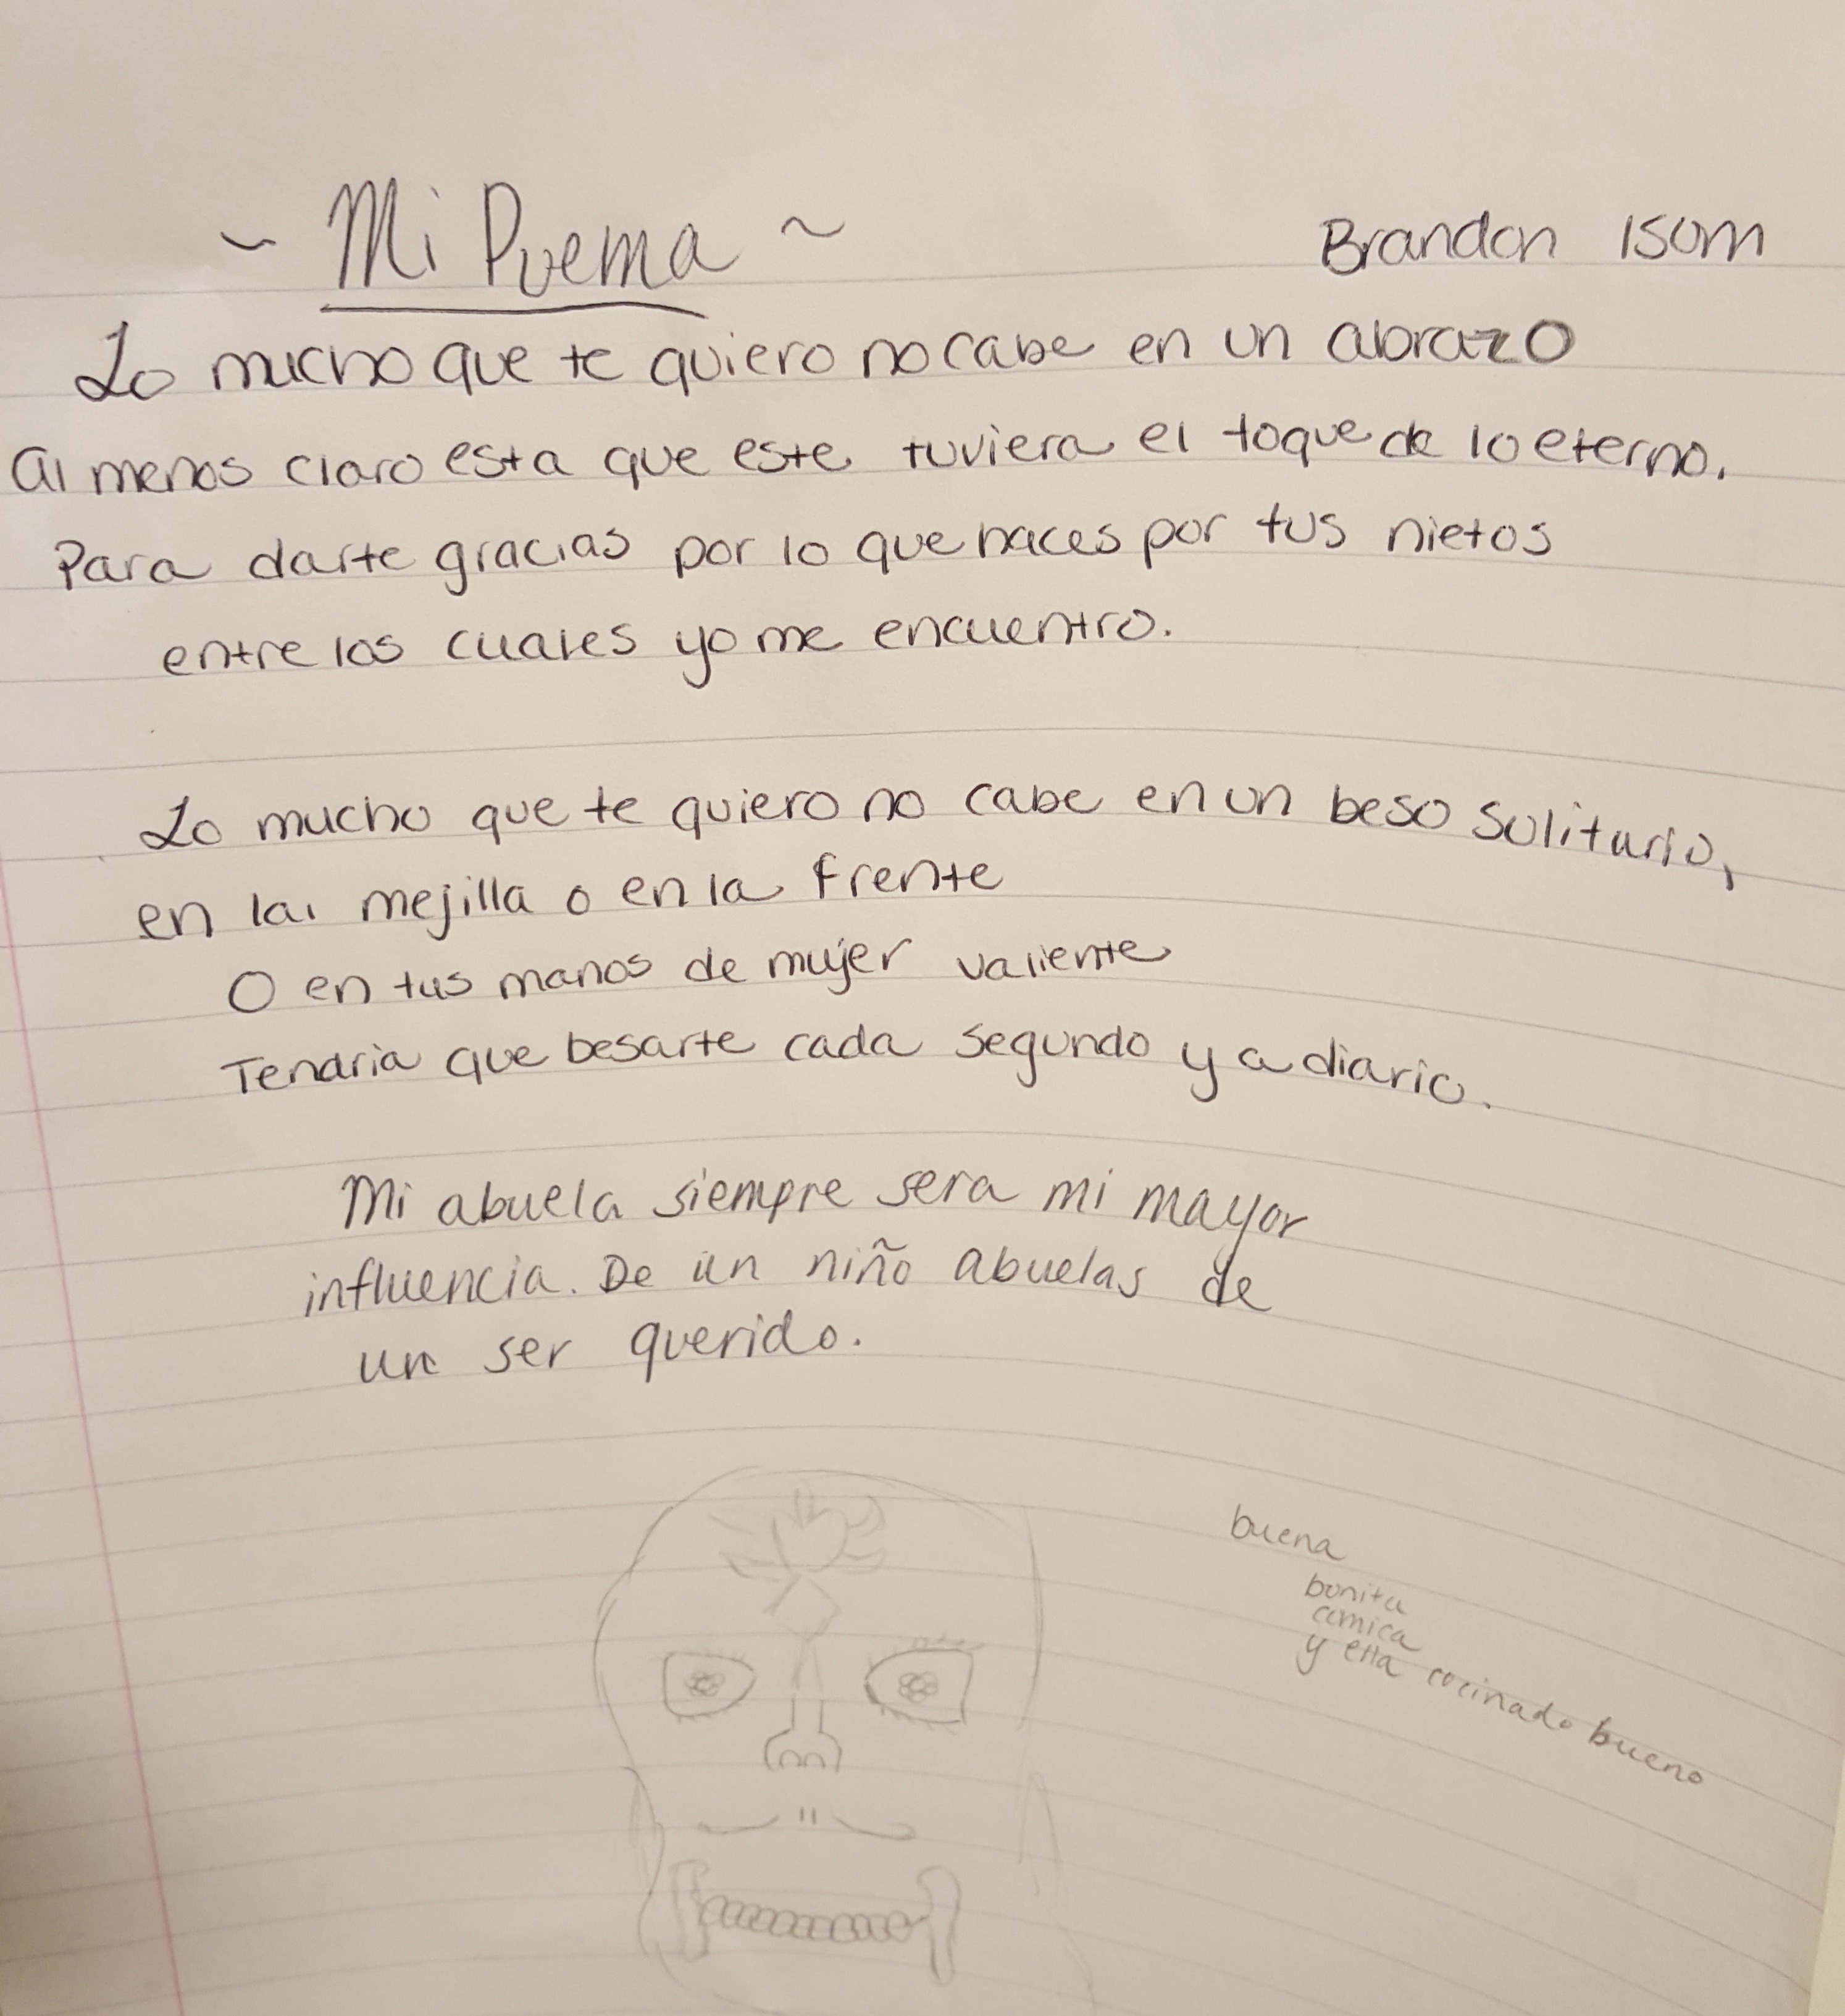 ~ Mi Poema ~
Brandon Isom
Lo mucho que te quiero no cabe en un abrazo
al menos claro esta que este tuviera el toque de lo eterno.
Para darte gracias por lo que haces por tus nietos
entre los cuales yo me encuentro.
Lo mucho que te quiero no cabe en un beso solitario,
en la mejilla o en la frente
O en tus manos de mujer valiente
Tendria que besarte cada segundo y a diario.
Mi abuela siempre sera mi mayor
influencia. De un niño abuelas de
un ser querido.
buena
bonita
comica
y ella cocinado bueno